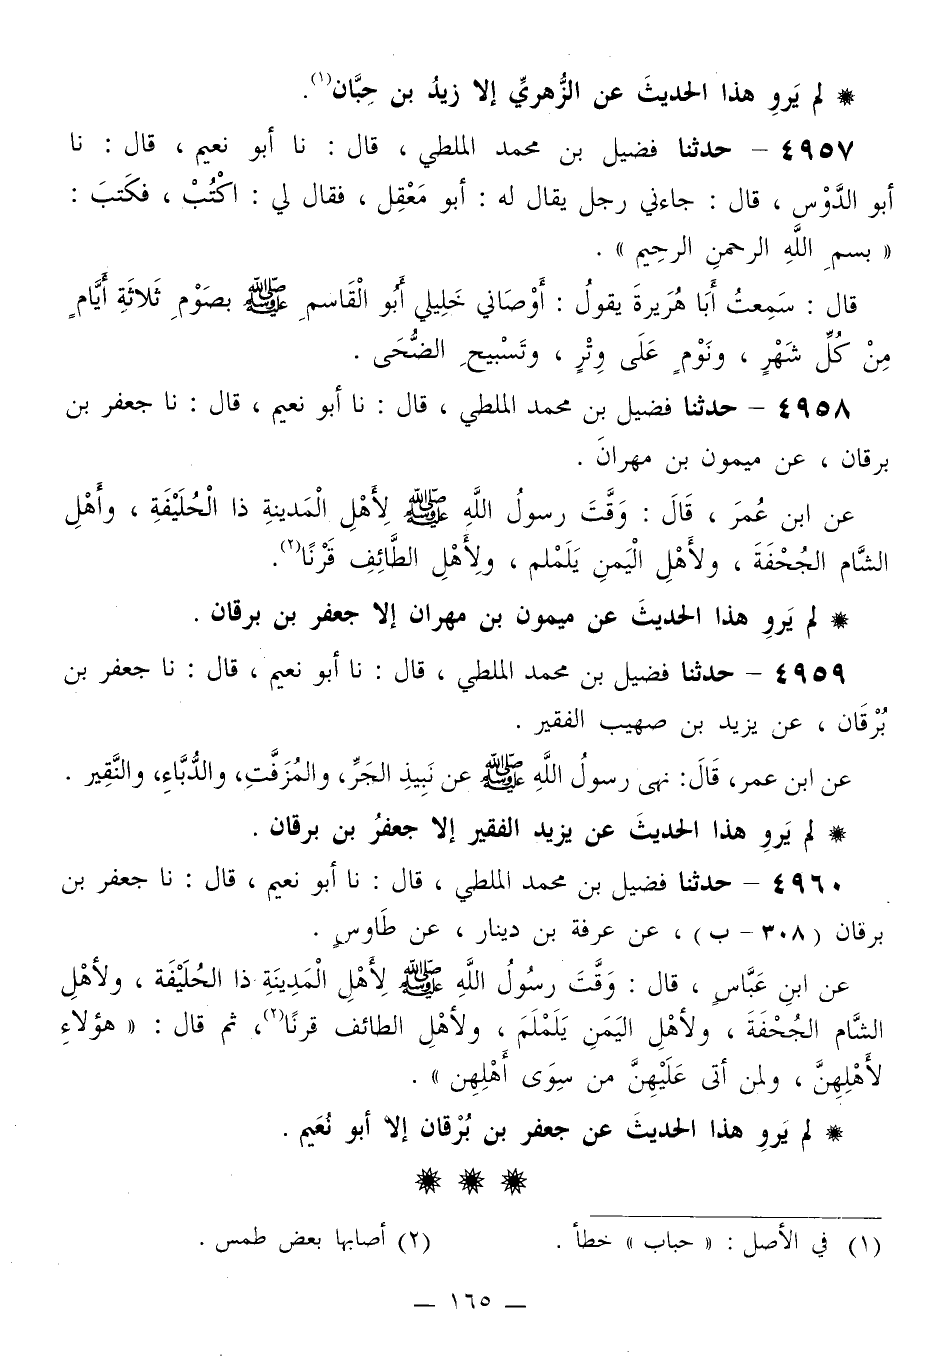 * لم يَروِ هذا الحديثَ عن الزُّهريِّ إلا زيدُ بن حِبَّان(١).
٤٩٥٧ – حدثنا فضيل بن محمد الملطي ، قال : نا أبو نعيم ، قال : نا
أبو الدَّوْس ، قال : جاءني رجل يقال له : أبو مَعْقِل ، فقال لي : اكْتُبْ ، فكَتبَ :
« بسمِ اللَّهِ الرحمنِ الرحِيم » .
قال : سَمِعتُ أَبَا هُرَيرةَ يقولُ : أَوْصَاني خَلِيلي أَبُو الْقَاسمِ ﷺ بصَوْمِ ثَلاثَةِ أَيَّامٍ
مِنْ كُلِّ شَهْرٍ ، ونَوْمٍ عَلَى وِتْرٍ ، وتَسْبيحِ الضُّحَى .
٤٩٥٨ – حدثنا فضيل بن محمد الملطي ، قال : نا أبو نعيم ، قال : نا جعفر بن
برقان ، عن ميمون بن مهرانَ .
عن ابن عُمرَ ، قَالَ : وَقَّتَ رسولُ اللَّهِ ﷺ لِأَهْلِ الْمَدينةِ ذا الْحُلَيْفَةِ ، وأَهْلِ
الشَّام الجُحْفَةَ ، ولأَهْلِ اليَمنِ يَلَمْلم ، ولِأَهْلِ الطَّائِفِ قَرْنًا(٢).
* لم يَروِ هذا الحديثَ عن ميمون بن مهران إلا جعفر بن برقان .
٤٩٥٩ – حدثنا فضيل بن محمد الملطي ، قال : نا أبو نعيم ، قال : نا جعفر بن
بُرْقَان ، عن يزيد بن صهيب الفقير .
عن ابن عمر، قَالَ: نهى رسولُ اللَّهِ ﷺ عن نَبِيذِ الجَرِّ، والمُزَفَّتِ، والدُّبَّاءِ، والنَّقِير .
* لم يَروِ هذا الحديثَ عن يزيد الفقير إلا جعفرُ بن برقان .
٤٩٦٠ – حدثنا فضيل بن محمد الملطي ، قال : نا أبو نعيم ، قال : نا جعفر بن
برقان ( ٣٠٨ – ب ) ، عن عرفة بن دينار ، عن طَاوسٍ .
عن ابنِ عَبَّاسٍ ، قال : وَقَّتَ رسُولُ اللَّهِ ﷺ لِأَهْلِ الْمَدِينَةِ ذا الحُلَيْفَة ، ولأهْلِ
الشَّام الجُحْفَةَ ، ولأهْلِ اليَمَنِ يَلَمْلَمَ ، ولأهْلِ الطائف قرنًا(٢)، ثم قال : « هؤلاءِ
لأَهْلِهِنَّ ، ولمن أتى عَلَيْهِنَّ من سِوَى أَهْلِهِن » .
* لم يَروِ هذا الحديثَ عن جعفر بن بُرْقان إلا أبو نُعَيم .
* * *
(١) في الأصل : « حباب » خطأ . (٢) أصابها بعض طمس .
– ١٦٥ –